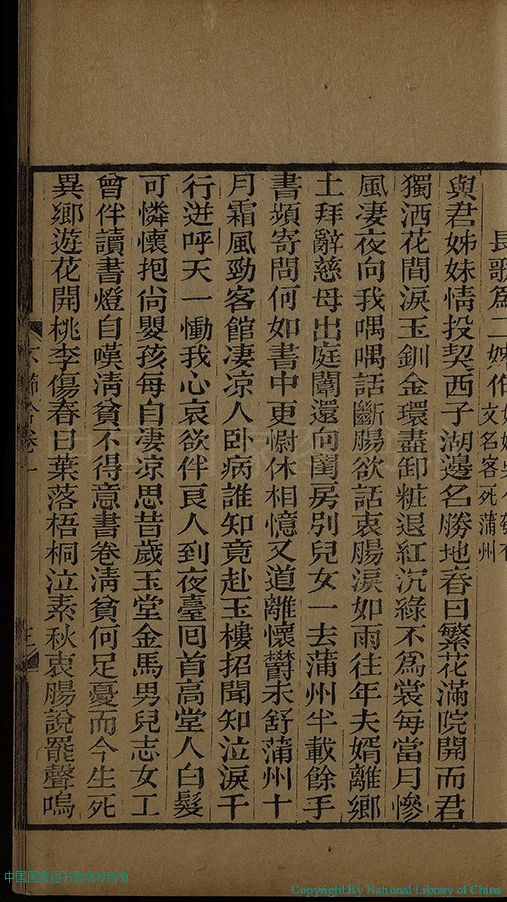 長歌為二姊作
文名客死蒲州
與君姊妹情投契西子湖邊名勝地春日繁花滿院開而君
獨洒花間淚玉釧金環盡卸粧退紅沉綠不為裳每當月慘
風凄夜向我喁喁話斷腸欲話衷腸淚如雨往年夫婿離鄉
土拜辭慈母出庭闈還向閨房別兒女一去蒲州半載餘手
書頻寄問何如書中更慰休相憶又道離懷欝未舒蒲州十
月霜風勁客館凄凉人卧病誰知竟赴玉樓招聞知泣淚千
行迸呼天一慟我心哀欲伴良人到夜臺囘首高堂人白髮
可憐懷抱尙嬰孩每自凄凉思昔歲玉堂金馬男兒志女工
曾伴讀書燈自嘆淸貧不得意書卷淸貧何足憂而今生死
異鄉遊花開桃李傷春日葉落梧桐泣素秋衷腸說罷聲嗚
卷一
中国国家图书馆
Copyright By National Library of China